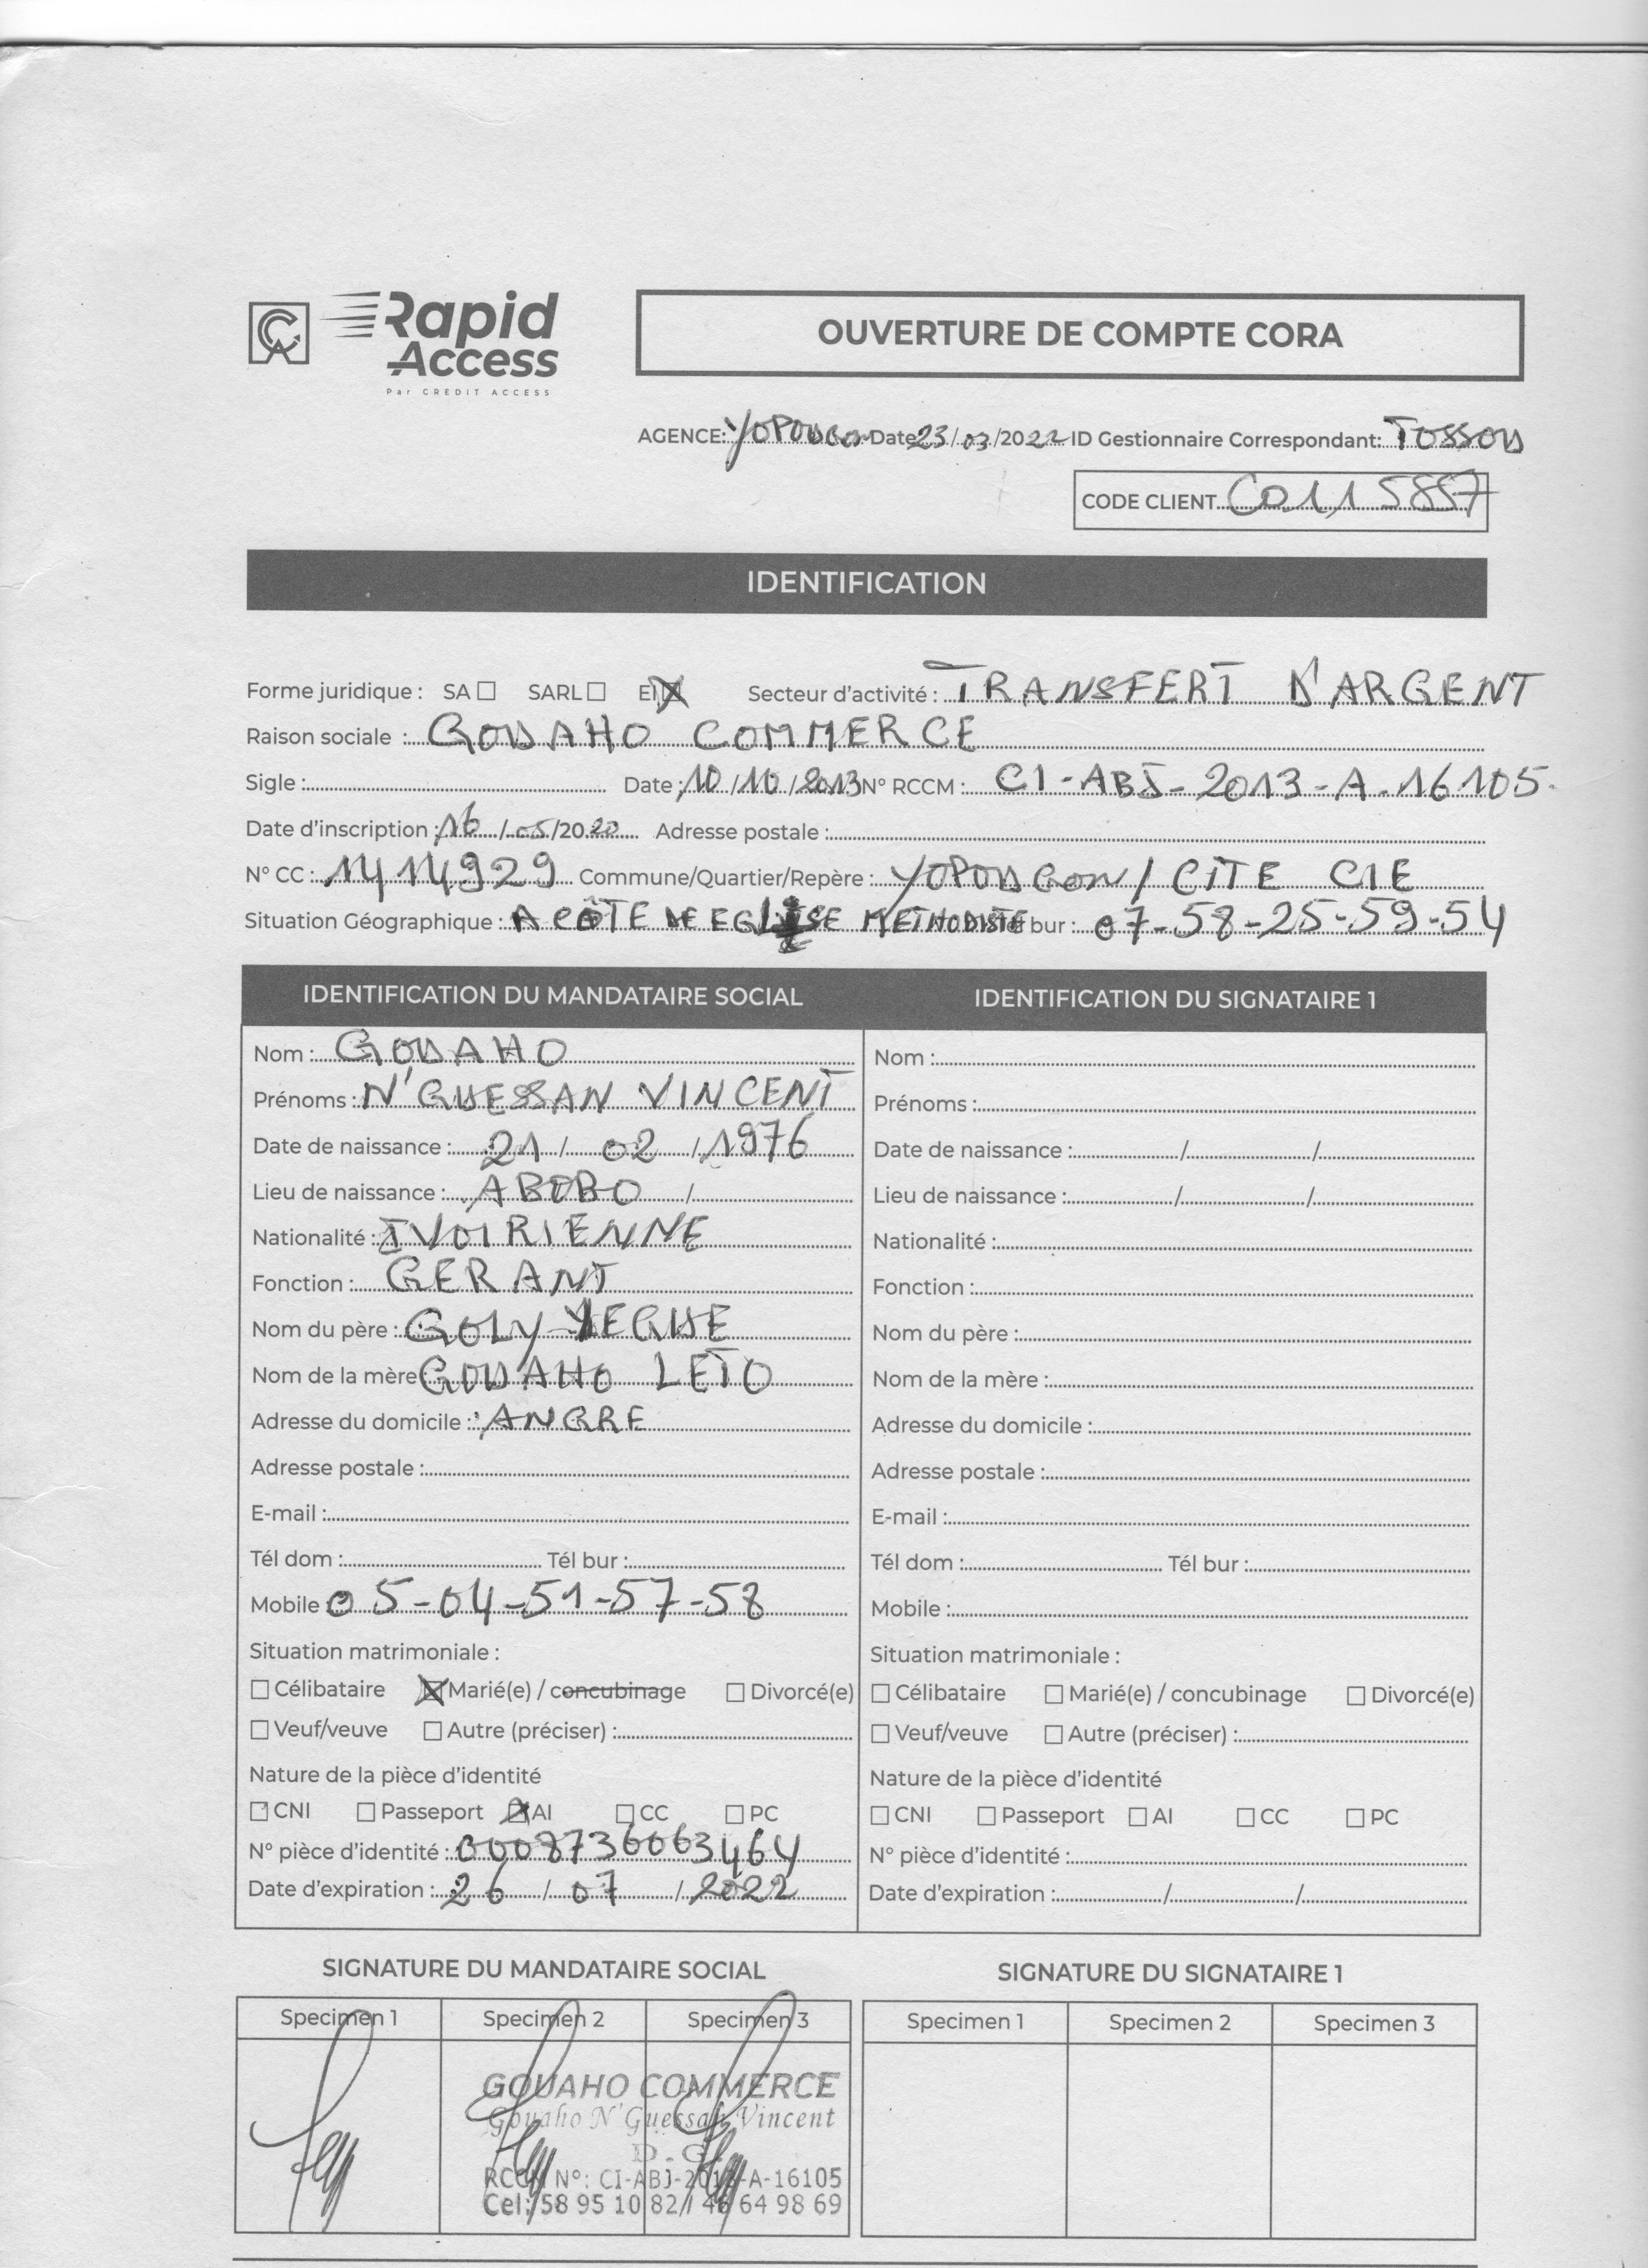 Rapid
Access
Par CREDIT ACCESS
OUVERTURE DE COMPTE CORA
AGENCE: YOPOUGON Date 23/03/2022 ID Gestionnaire Correspondant: TOSSOU
CODE CLIENT C0115887
IDENTIFICATION
Forme juridique : SA SARL EI Secteur d'activité : TRANSFERT D'ARGENT
Raison sociale : GOUAHO COMMERCE
Sigle : Date : 10/10/2013 N° RCCM : CI-ABJ-2013-A-16105
Date d'inscription : 16/05/2020 Adresse postale :
N° CC : 1414929 Commune/Quartier/Repère : YOPOUGON / CITE CIE
Situation Géographique : A CÔTE DE EGLISE METHODISTE bur : 07-58-25-59-54
IDENTIFICATION DU MANDATAIRE SOCIAL IDENTIFICATION DU SIGNATAIRE 1
Nom : GOUAHO Nom :
Prénoms : N'GUESSAN VINCENT Prénoms :
Date de naissance : 21 / 02 / 1976 Date de naissance : / /
Lieu de naissance : ABOBO / Lieu de naissance : / /
Nationalité : IVOIRIENNE Nationalité :
Fonction : GERANT Fonction :
Nom du père : GOLY Nom du père :
Nom de la mère GOUAHO LETO Nom de la mère :
Adresse du domicile : ANGRE Adresse du domicile :
Adresse postale : Adresse postale :
E-mail : E-mail :
Tél dom : Tél bur : Tél dom : Tél bur :
Mobile 05-04-51-57-58 Mobile :
Situation matrimoniale : Situation matrimoniale :
Célibataire Marié(e) / concubinage Divorcé(e) Célibataire Marié(e) / concubinage Divorcé(e)
Veuf/veuve Autre (préciser) : Veuf/veuve Autre (préciser) :
Nature de la pièce d'identité Nature de la pièce d'identité
CNI Passeport AI CC PC CNI Passeport AI CC PC
N° pièce d'identité : 0008736063464 N° pièce d'identité :
Date d'expiration : 26 / 07 / 2022 Date d'expiration : / /
SIGNATURE DU MANDATAIRE SOCIAL SIGNATURE DU SIGNATAIRE 1
Specimen 1 Specimen 2 Specimen 3 Specimen 1 Specimen 2 Specimen 3
GOUAHO COMMERCE
Gouaho N'Guessan Vincent
D.G.
RCCM N°: CI-ABJ-2013-A-16105
Cel: 58 95 10 82 / 46 64 98 69